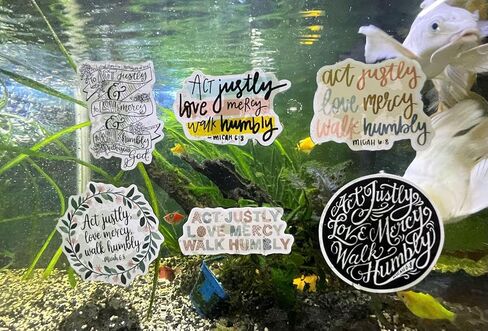 Act justly
&
love mercy
&
walk humbly
God
Act justly
love mercy
walk humbly
- MICAH 6:8
act justly
love mercy
walk humbly
MICAH 6:8
Act justly,
love mercy,
walk humbly
Micah 6:8
ACT JUSTLY
LOVE MERCY
WALK HUMBLY
Act Justly
Love Mercy
Walk
Humbly